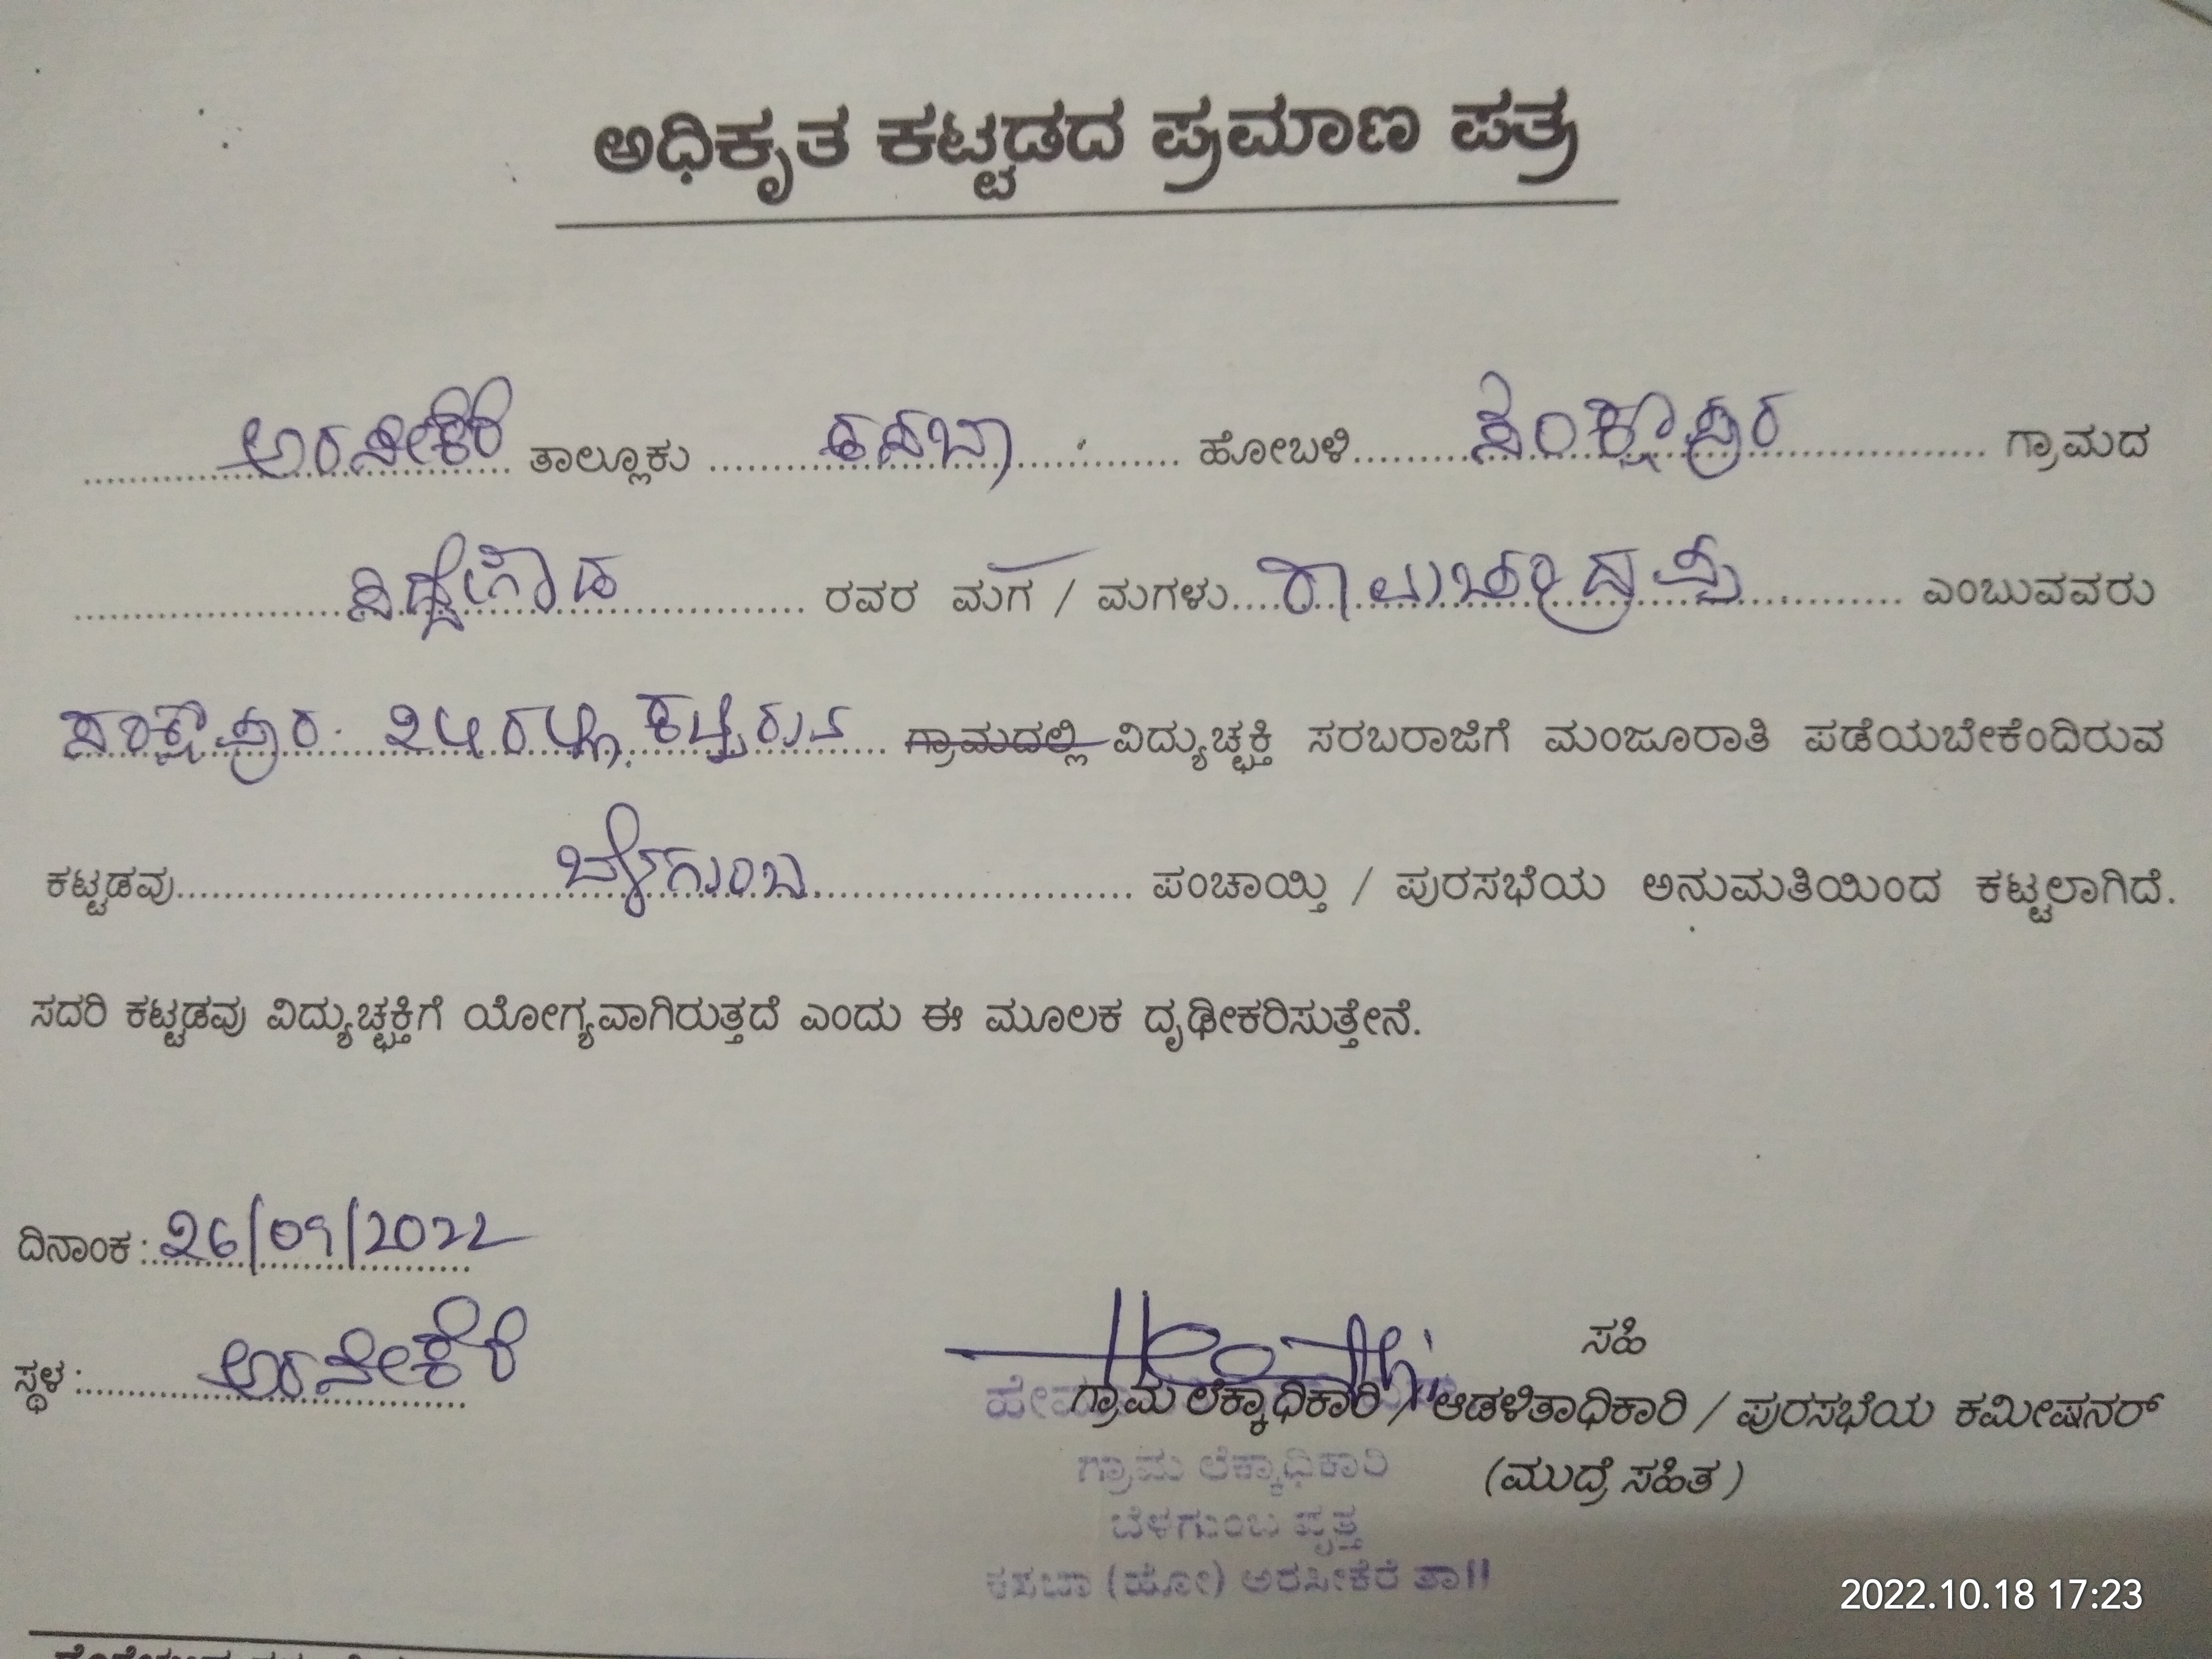 ಅಧಿಕೃತ ಕಟ್ಟಡದ ಪ್ರಮಾಣ ಪತ್ರ
ಅರಸೀಕೆರೆ ತಾಲ್ಲೂಕು ಕಸಬಾ ಹೋಬಳಿ ಗ್ರಾಮದ
ಸಿದ್ದೇಗೌಡ ರವರ ಮಗ / ಮಗಳು ರಾಮಚಂದ್ರಪ್ಪ ಎಂಬುವವರು
ಗ್ರಾಮದಲ್ಲಿ ವಿದ್ಯುಚ್ಛಕ್ತಿ ಸರಬರಾಜಿಗೆ ಮಂಜೂರಾತಿ ಪಡೆಯಬೇಕೆಂದಿರುವ
ಕಟ್ಟಡವು ಬೆಳಗುಂಬ ಪಂಚಾಯ್ತಿ / ಪುರಸಭೆಯ ಅನುಮತಿಯಿಂದ ಕಟ್ಟಲಾಗಿದೆ.
ಸದರಿ ಕಟ್ಟಡವು ವಿದ್ಯುಚ್ಛಕ್ತಿಗೆ ಯೋಗ್ಯವಾಗಿರುತ್ತದೆ ಎಂದು ಈ ಮೂಲಕ ದೃಢೀಕರಿಸುತ್ತೇನೆ.
ದಿನಾಂಕ : 26/09/2022
ಸ್ಥಳ : ಅರಸೀಕೆರೆ
ಸಹಿ
ಗ್ರಾಮ ಲೆಕ್ಕಾಧಿಕಾರಿ / ಆಡಳಿತಾಧಿಕಾರಿ / ಪುರಸಭೆಯ ಕಮೀಷನರ್
(ಮುದ್ರೆ ಸಹಿತ)
ಗ್ರಾಮ ಲೆಕ್ಕಾಧಿಕಾರಿ
ಬೆಳಗುಂಬ ವೃತ್ತ
ಕಸಬಾ (ಹೋ) ಅರಸೀಕೆರೆ ತಾ||
2022.10.18 17:23